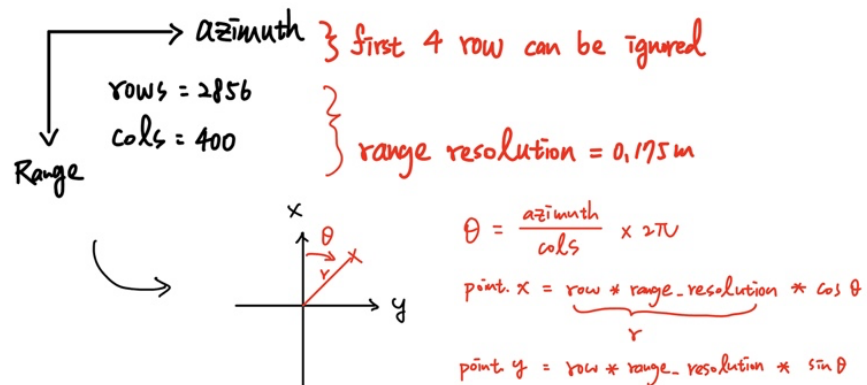 azimuth } first 4 row can be ignored
rows = 2856
cols = 400
} range resolution = 0.175m
Range
x
θ
r
x
y
θ = azimuth / cols × 2π
point.x = row * range_resolution * cos θ
r
point.y = row * range_resolution * sin θ